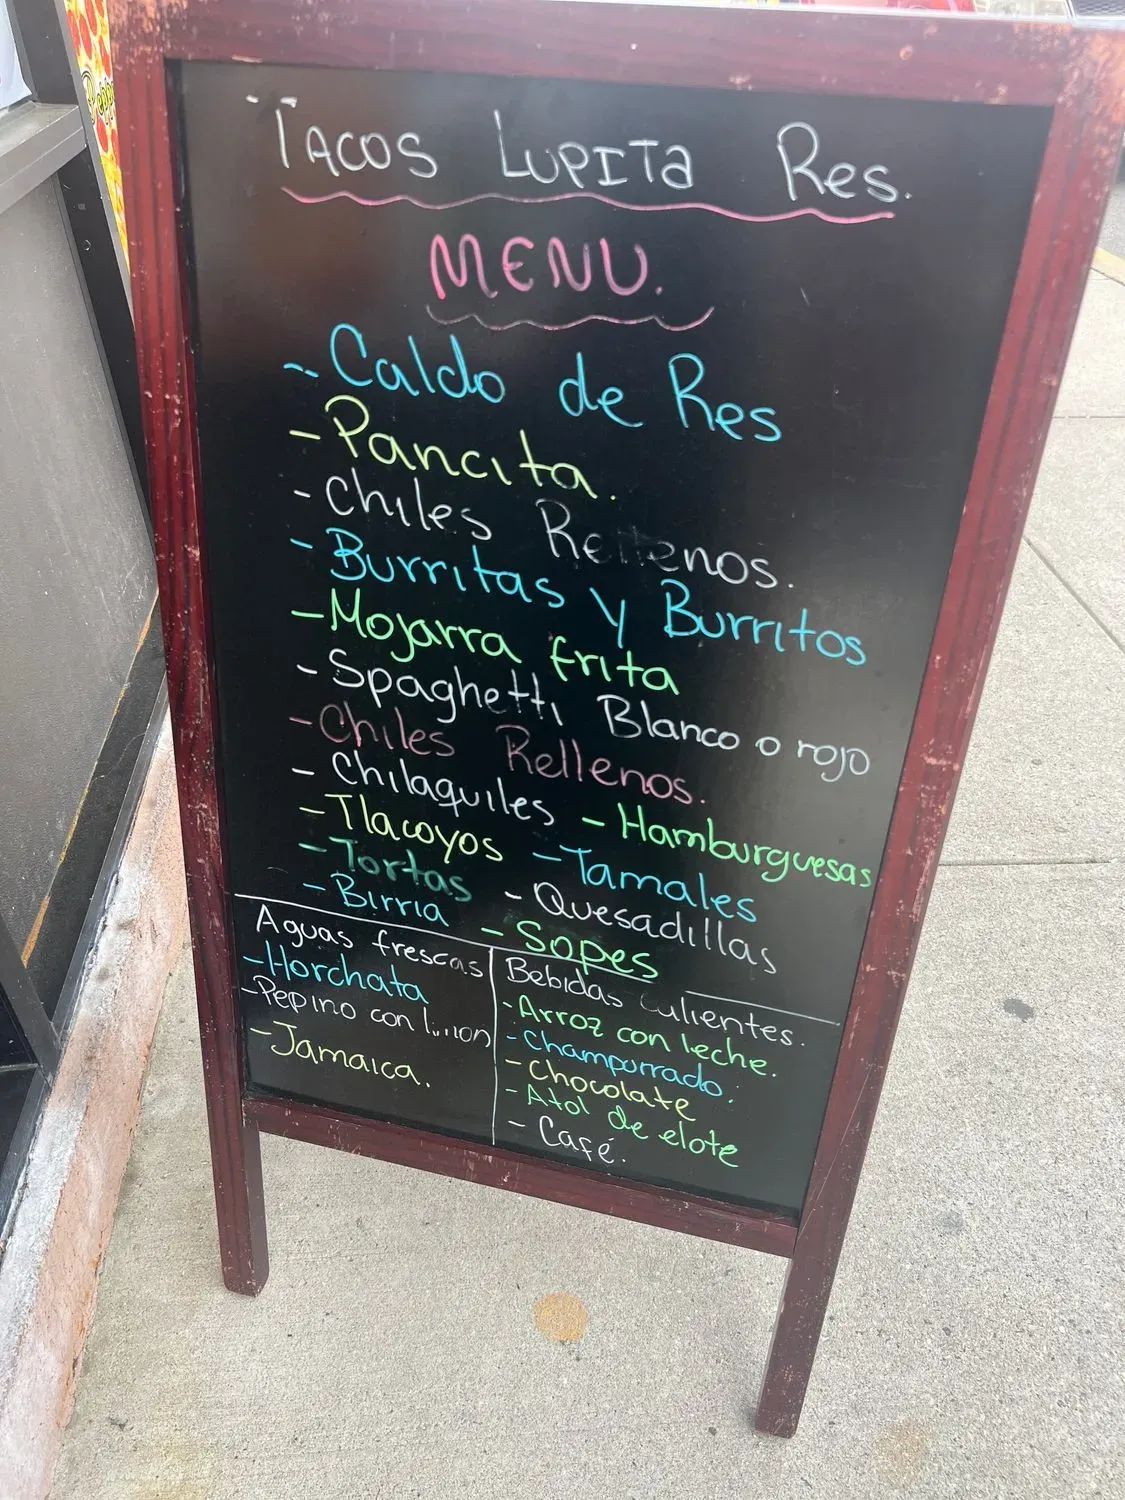 Pepp
TACOS LUPITa Res.
MENU.
- Caldo de Res
- Pancita.
- Chiles Rellenos.
- Burritas y Burritos
- Mojarra frita
- Spaghetti Blanco o rojo
- Chiles Rellenos.
- Chilaquiles
- Hamburguesas
- Tlacoyos
- Tamales
- Tortas
- Quesadillas
- Birria
- Sopes
Aguas frescas
- Horchata
- Pepino con limon
- Jamaica.
Bebidas Calientes.
- Arroz con leche.
- Champurrado.
- Chocolate
- Atol de elote
- Café.